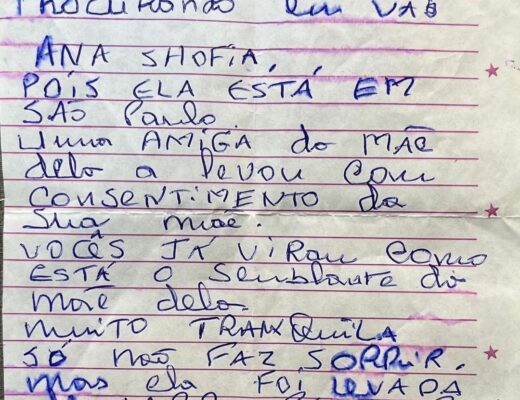 PROCURANDO em VÃO
ANA SHOFIA,
POIS ELA ESTÁ EM
SÃO Paulo.
Uma AMIGA da MÃE
dela a levou com
CONSENTIMENTO da
Sua mãe.
VOCÊS JÁ VIRAM COMO
ESTÁ O Semblante da
mãe dela.
MUITO TRANQUILA
SÓ não FAZ SORRIR.
mas ela FOI LEVADA